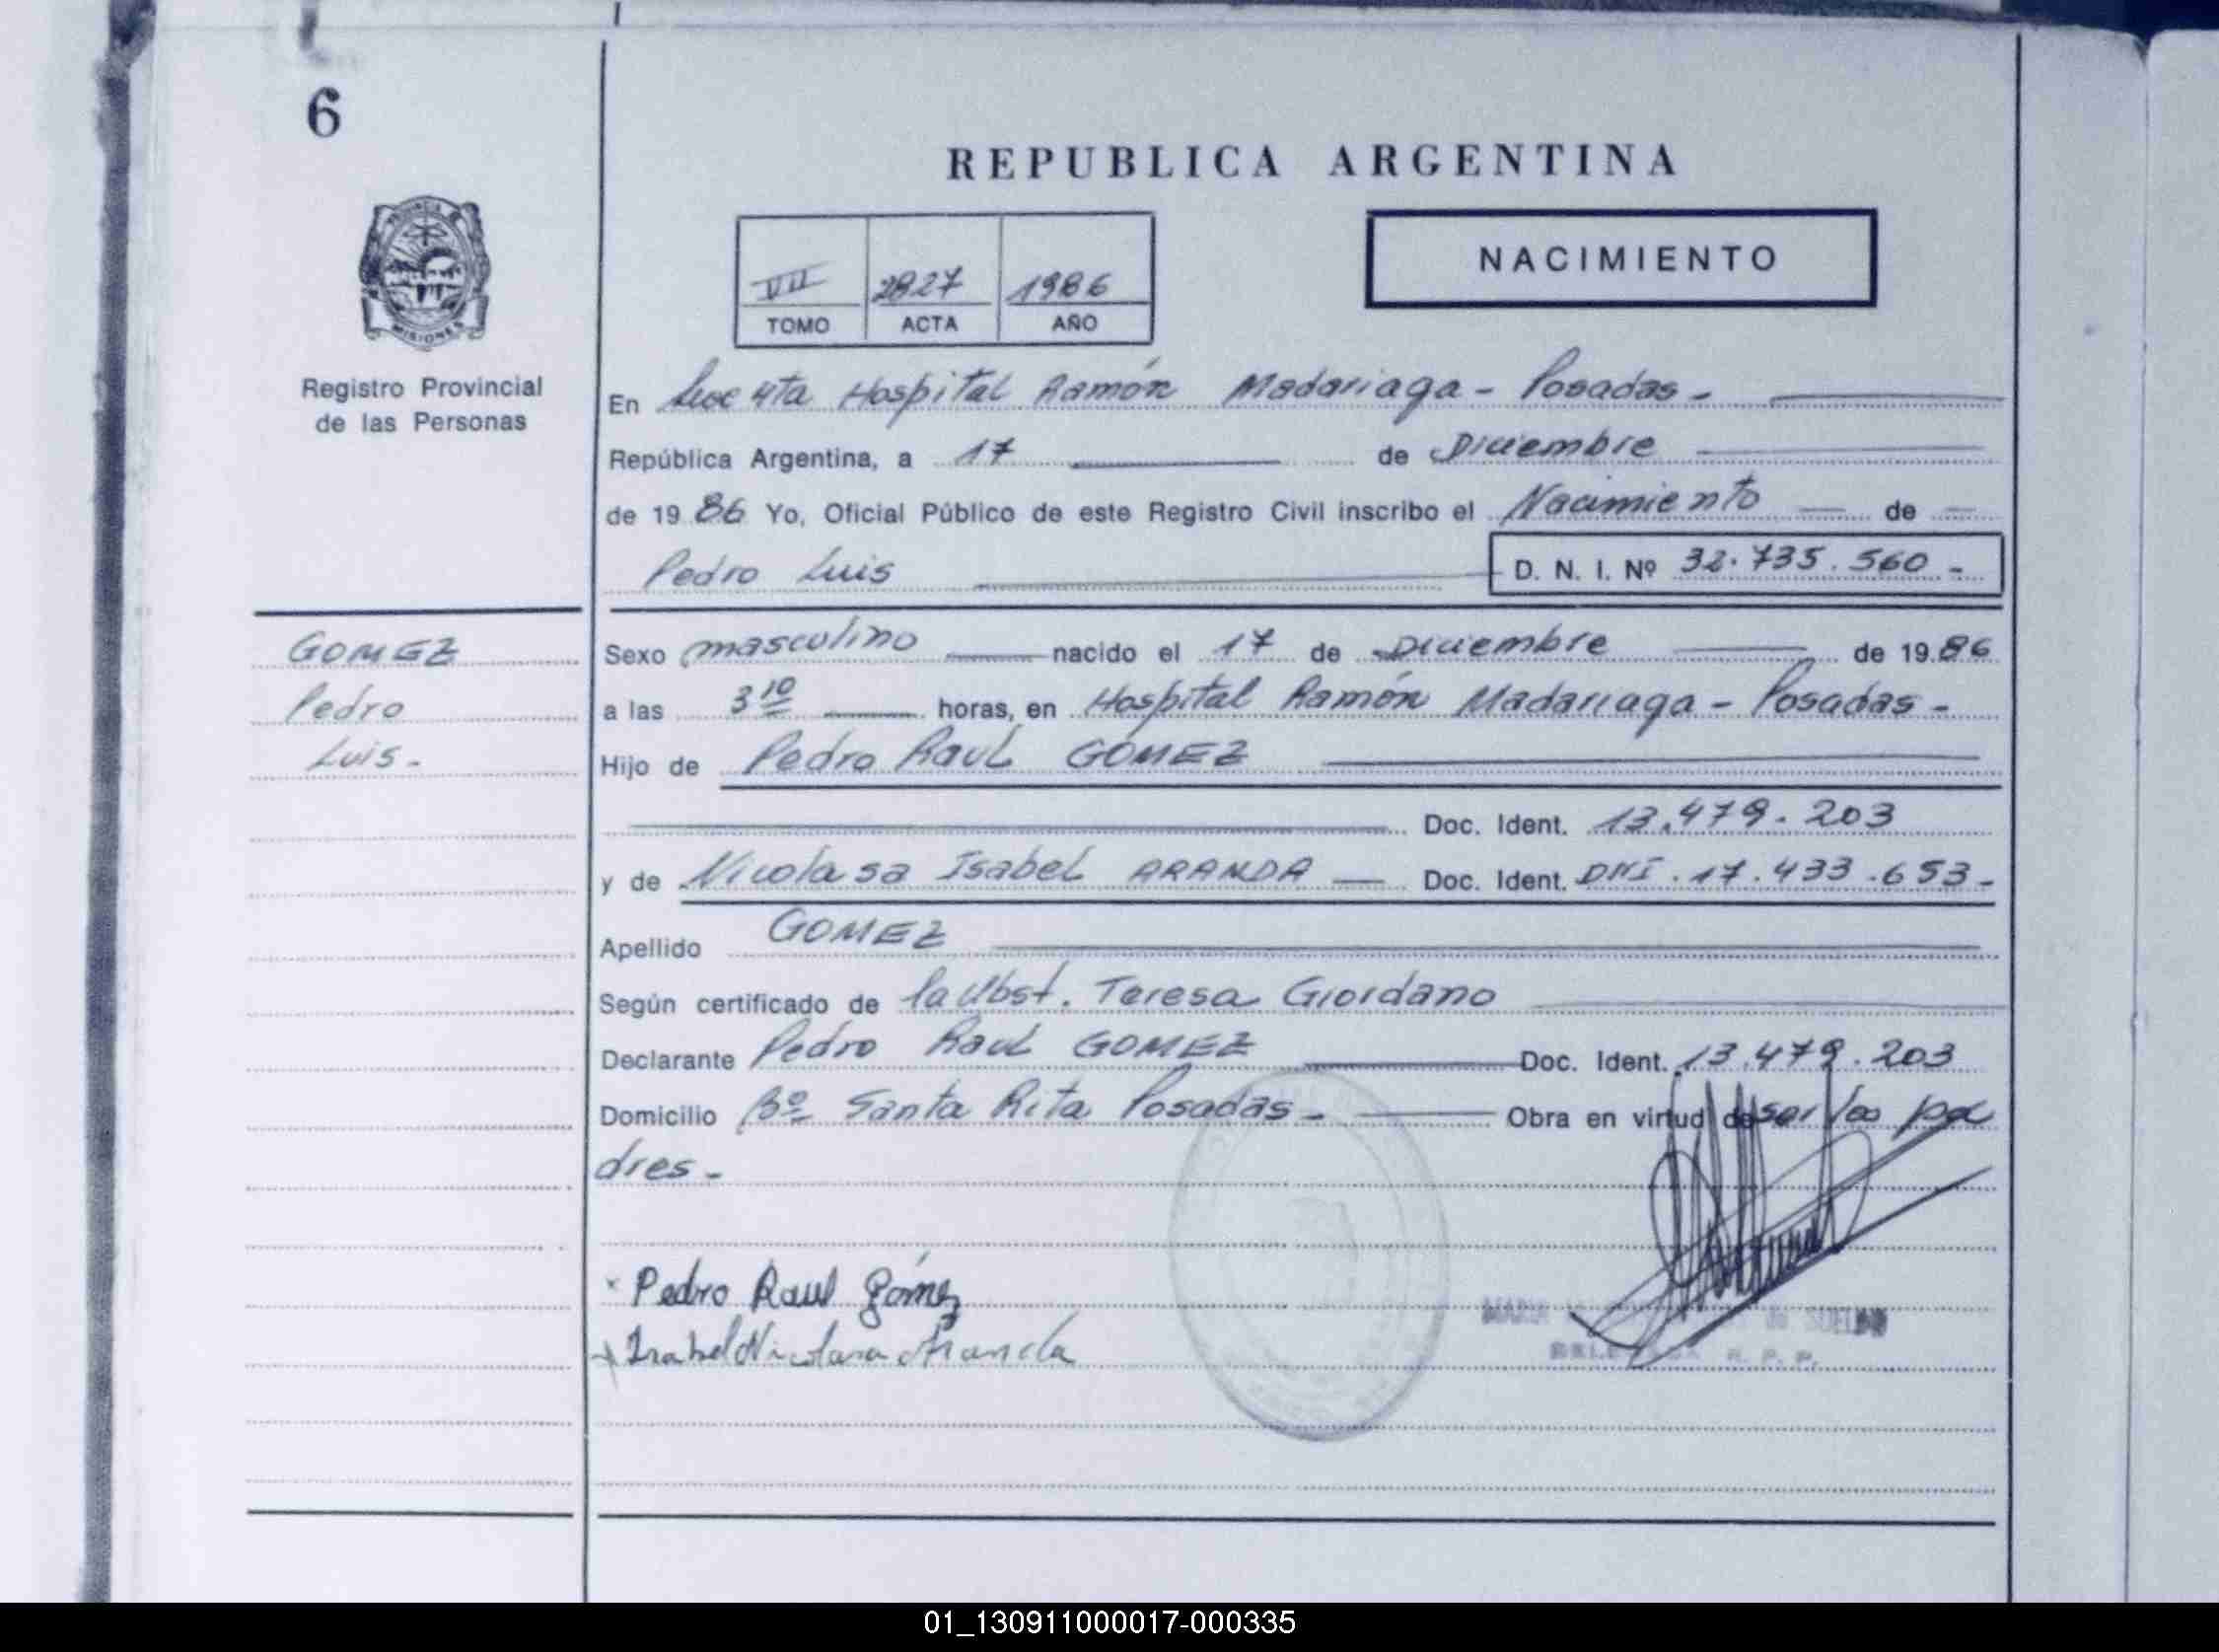 6
REPUBLICA ARGENTINA
NACIMIENTO
VII 2827 1986
TOMO ACTA AÑO
PROVINCIA DE
MISIONES
Registro Provincial
de las Personas
En 4ta Hospital Ramón Madariaga - Posadas -
República Argentina, a 17 de Diciembre
de 19 86 Yo, Oficial Público de este Registro Civil inscribo el Nacimiento de
Pedro Luis D. N. I. Nº 32.735.560 -
GOMEZ
Pedro
Luis -
Sexo masculino nacido el 17 de Diciembre de 19 86
a las 3 10 horas, en Hospital Ramón Madariaga - Posadas -
Hijo de Pedro Raul GOMEZ
Doc. Ident. 13.479.203
y de Nicolasa Isabel ARANDA Doc. Ident. DNI. 17.433.653 -
Apellido GOMEZ
Según certificado de la Obst. Teresa Giordano
Declarante Pedro Raul GOMEZ Doc. Ident. 13.479.203
Domicilio Bº Santa Rita Posadas - Obra en virtud de ser los pa
dres -
x Pedro Raul Gómez
x Isabel Nicolasa Aranda
MARIA DE SUELDO
R. P. P.
01_130911000017-000335